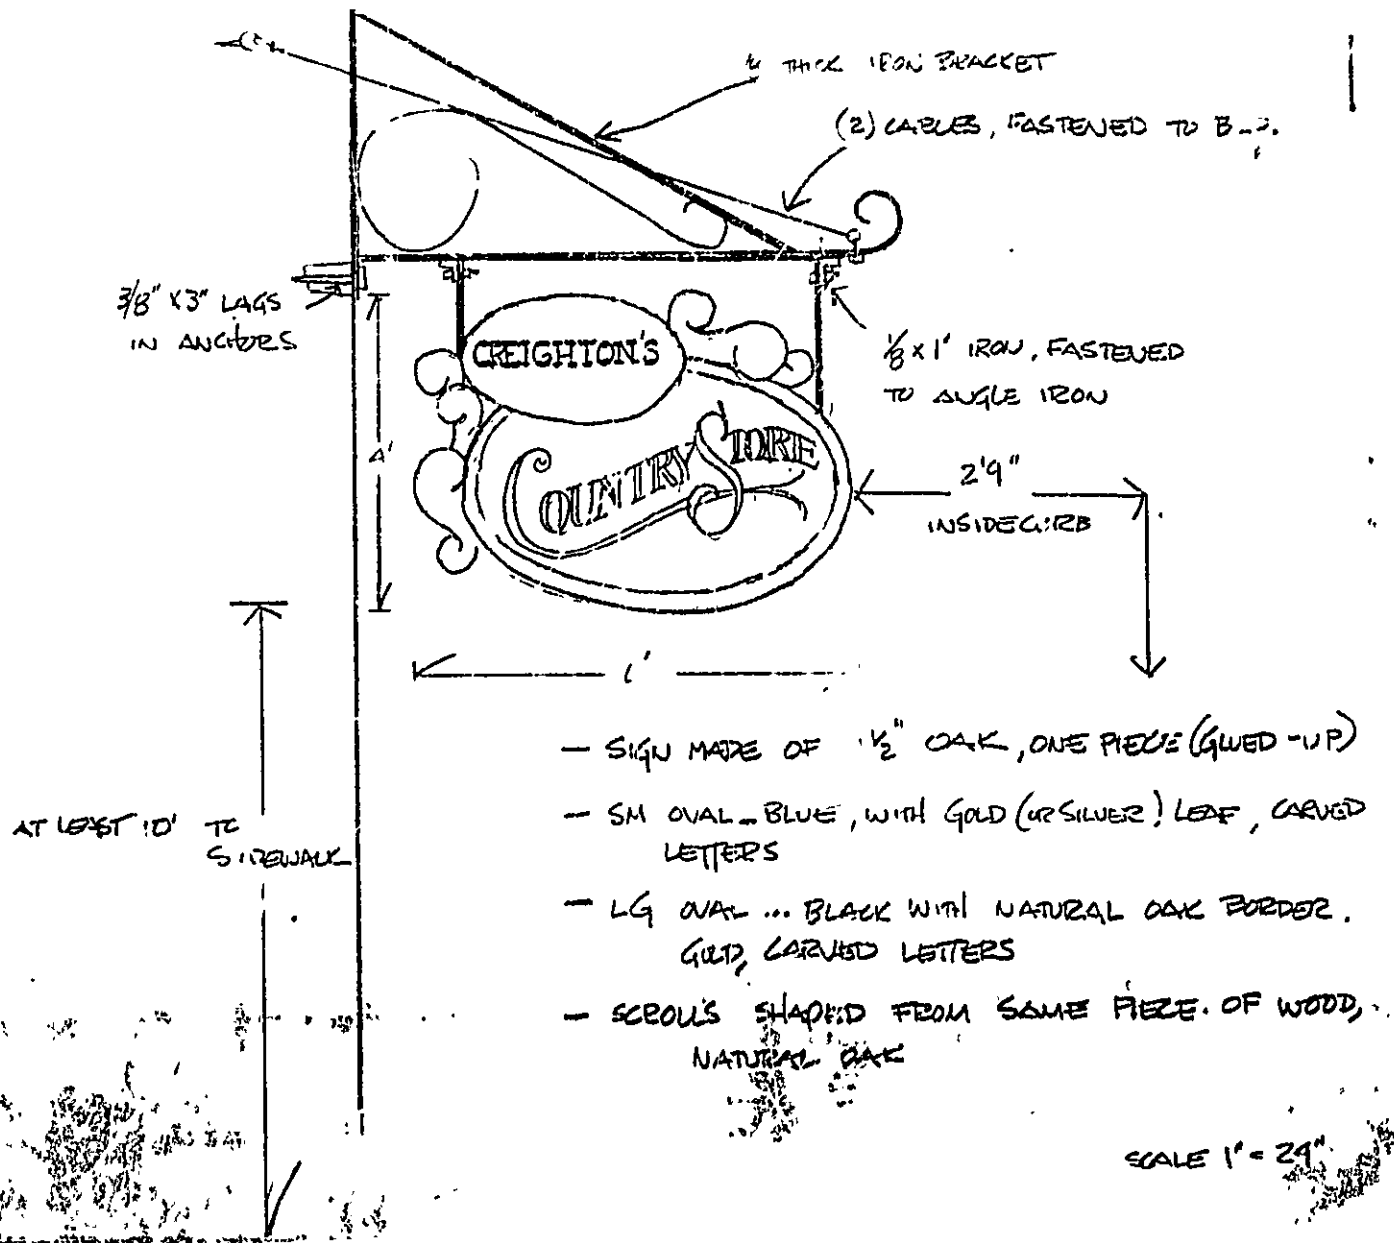 THICK IRON BRACKET
(2) CABLES, FASTENED TO
3/8" X 3" LAGS
IN ANCHORS
CREIGHTON'S
1/8 X 1" IRON, FASTENED
TO ANGLE IRON
COUNTRY STORE
4'
2'9"
INSIDE CURB
AT LEAST 10' TO
SIDEWALK
— SIGN MADE OF 1/2" OAK, ONE PIECE (GLUED-UP)
— SM OVAL - BLUE, WITH GOLD (OR SILVER) LEAF, CARVED
LETTERS
— LG OVAL ... BLACK WITH NATURAL OAK BORDER.
GOLD, CARVED LETTERS
— SCROLLS SHAPED FROM SAME PIECE OF WOOD,
NATURAL OAK
SCALE 1" = 24"